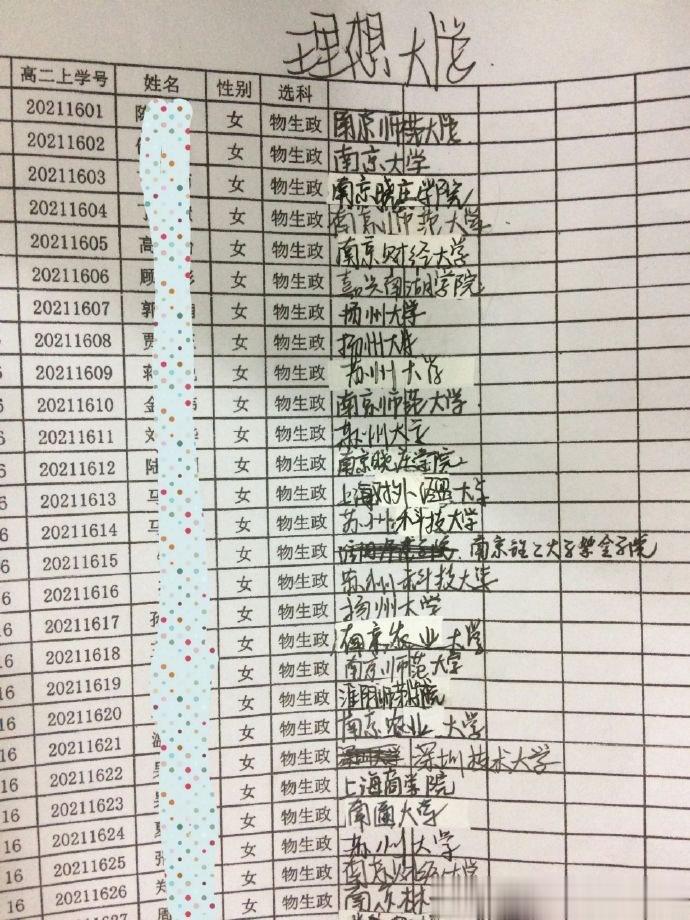 理想大学
高二上学号 姓名 性别 选科
20211601 陈 女 物生政 南京师范大学
20211602 女 物生政 南京大学
20211603 女 物生政 南京晓庄学院
20211604 女 物生政 南京师范大学
20211605 高 女 物生政 南京财经大学
20211606 顾 女 物生政 嘉兴南湖学院
20211607 郭 女 物生政 扬州大学
20211608 贾 女 物生政 扬州大学
20211609 蒋 女 物生政 苏州大学
6 20211610 金 女 物生政 南京师范大学
6 20211611 刘 女 物生政 苏州大学
6 20211612 陆 女 物生政 南京晓庄学院
6 20211613 马 女 物生政 上海对外经贸大学
6 20211614 马 女 物生政 苏州科技大学
6 20211615 女 物生政 南京理工大学紫金学院
6 20211616 女 物生政 苏州科技大学
16 20211617 孙 女 物生政 扬州大学
16 20211618 女 物生政 南京农业大学
16 20211619 女 物生政 南京师范大学
16 20211620 女 物生政 淮阴师范学院
16 20211621 女 物生政 南京农业大学
16 20211622 女 物生政 深圳技术大学
16 20211623 女 物生政 上海商学院
16 20211624 女 物生政 大学
16 20211625 张 女 物生政 苏州大学
16 20211626 郑 女 物生政 南京财经大学
周 女 物生政 南京林